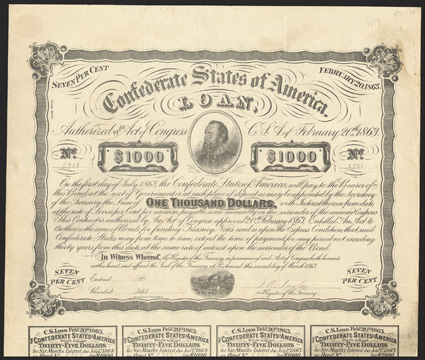 SEVEN PER CENT
FEBRUARY 20, 1863.
Confederate States of America.
LOAN,
Authorized by Act of Congress C. S. A. of February 20th 1863.
No.
$1000
$1000
No.
On the first day of July 1868, the Confederate States of America, will pay to the Bearer of
this Bond, at the seat of Government, or at such place of deposit as may be appointed by the Secretary
of the Treasury the Sum of ONE THOUSAND DOLLARS, with Interest thereon from date
at the rate of Seven per Cent per annum, payable
This Contract is authorized by an Act of Congress approved February 20th 1863, Entitled An Act to
authorize the issue of Bonds for funding Treasury Notes and upon the Express Condition that said
Confederate States may from time to time, extend the time of payment for any period not exceeding
thirty years from this date at the same rate
In Witness Whereof, the Register of the Treasury in pursuance of said Act of Congress hath hereunto
set his hand, and affixed the Seal of the Treasury at Richmond this second day of March 1863.
SEVEN PER CENT
Entered
Recorded
Register of the Treasury
SEVEN PER CENT
C.S. Loan Feb. 20th 1863.
THE CONFEDERATE STATES OF AMERICA
THIRTY-FIVE DOLLARS
for Six Months Interest due
C.S. Loan Feb. 20th 1863.
THE CONFEDERATE STATES OF AMERICA
THIRTY-FIVE DOLLARS
for Six Months Interest due
C.S. Loan Feb. 20th 1863.
THE CONFEDERATE STATES OF AMERICA
THIRTY-FIVE DOLLARS
for Six Months Interest due
C.S. Loan Feb. 20th 1863.
THE CONFEDERATE STATES OF AMERICA
THIRTY-FIVE DOLLARS
for Six Months Interest due